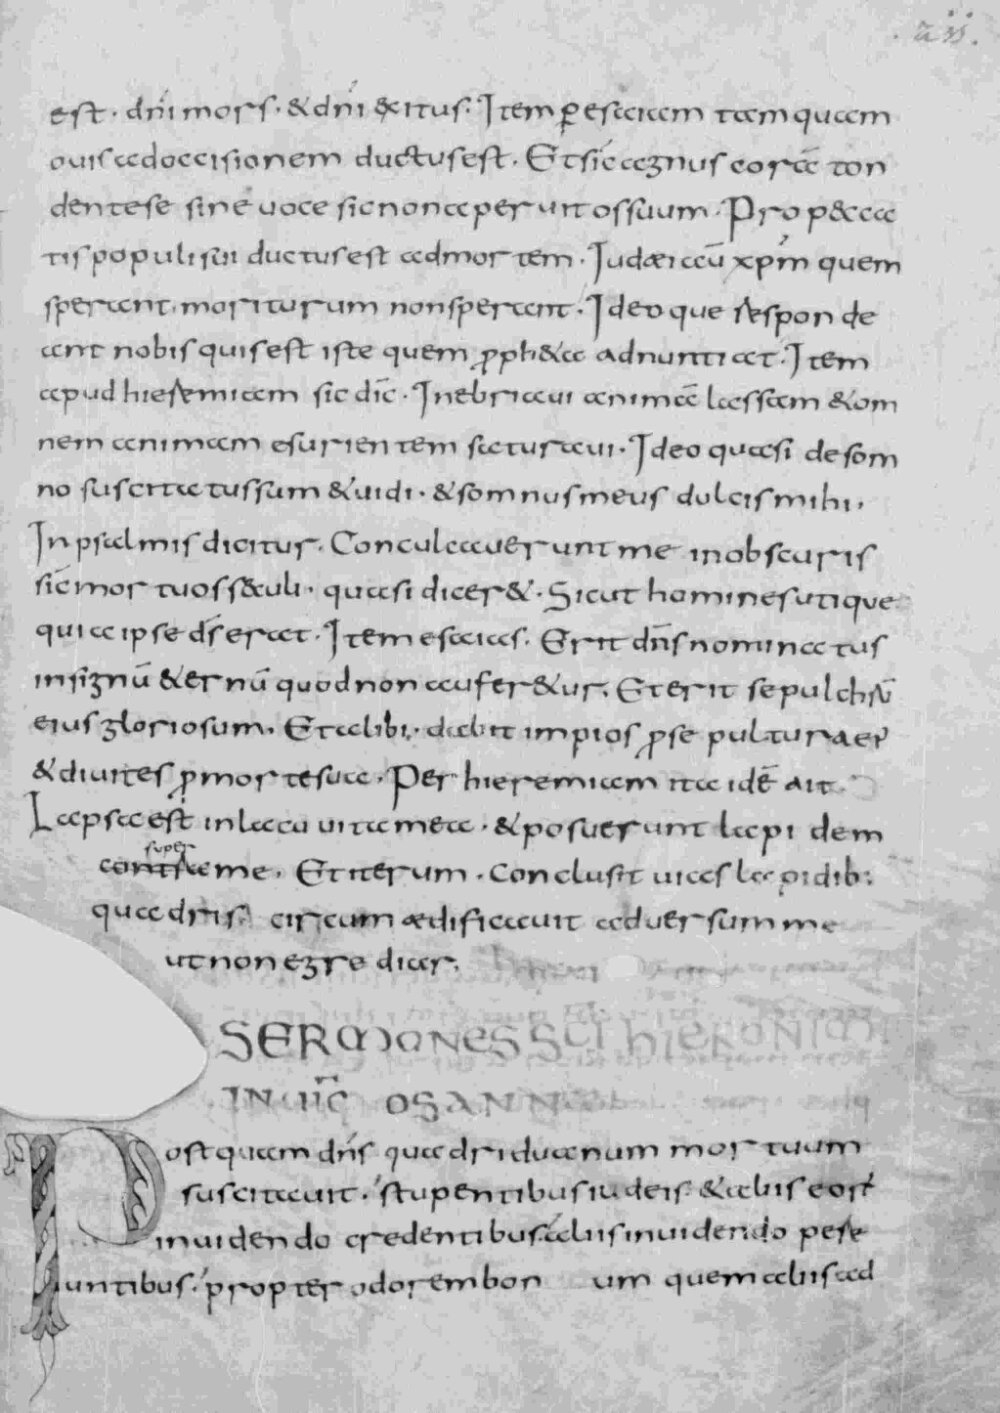 est. dñi mors. & dñi exitus. Item ꝑ esaiam tam quam
ouis ad occisionem ductus est. Et sic agnus corā ton
dente se sine uoce sic non aperuit os suum. Pro peca
tis populi sui ductus est ad mortem. Iudæi aū xp̄m quem
sperant. moriturum non sperant. Ideoque respon de
ant nobis quis est iste quem ꝓph&a adnuntiat. Item
apud hieremiam sic dic̄. Inebriaui animā lassam & om
nem animam esurientem saturaui. Ideo quasi de som
no suscitatus sum & uidi. & somnus meus dulcis mihi.
In psalmis dicitur. Conculcauerunt me in obscuris
sic̄ mortuos sæculi. quasi dicer&. Sicut homines utique
quia ipse ds̄ erat. Item esaias. Erit dn̄s nominatus
in signū & ernū quod non aufer&ur. Et erit sepulchrū
eius gloriosum. Et alibi. dabit impios ꝓ sepultura ei'
& diuites ꝓ morte sua. Per hieremiam ita idē ait
Lapsa est in lacu uita mea. & posuerunt lapidem
super
contra me. Et iterum. Conclusit uias lapidib:
quadris. circum ædificauit aduersum me
ut non egrediar.
SERMONES SCI HIERONIMI
OSANNA
Post quam dn̄s quadriduanum mortuum
suscitauit. stupentibus iudeis & aliis eorū
inuidendo credentibus. aliis inuidendo pere
untibus. propter odorem bon um quem aliis ad